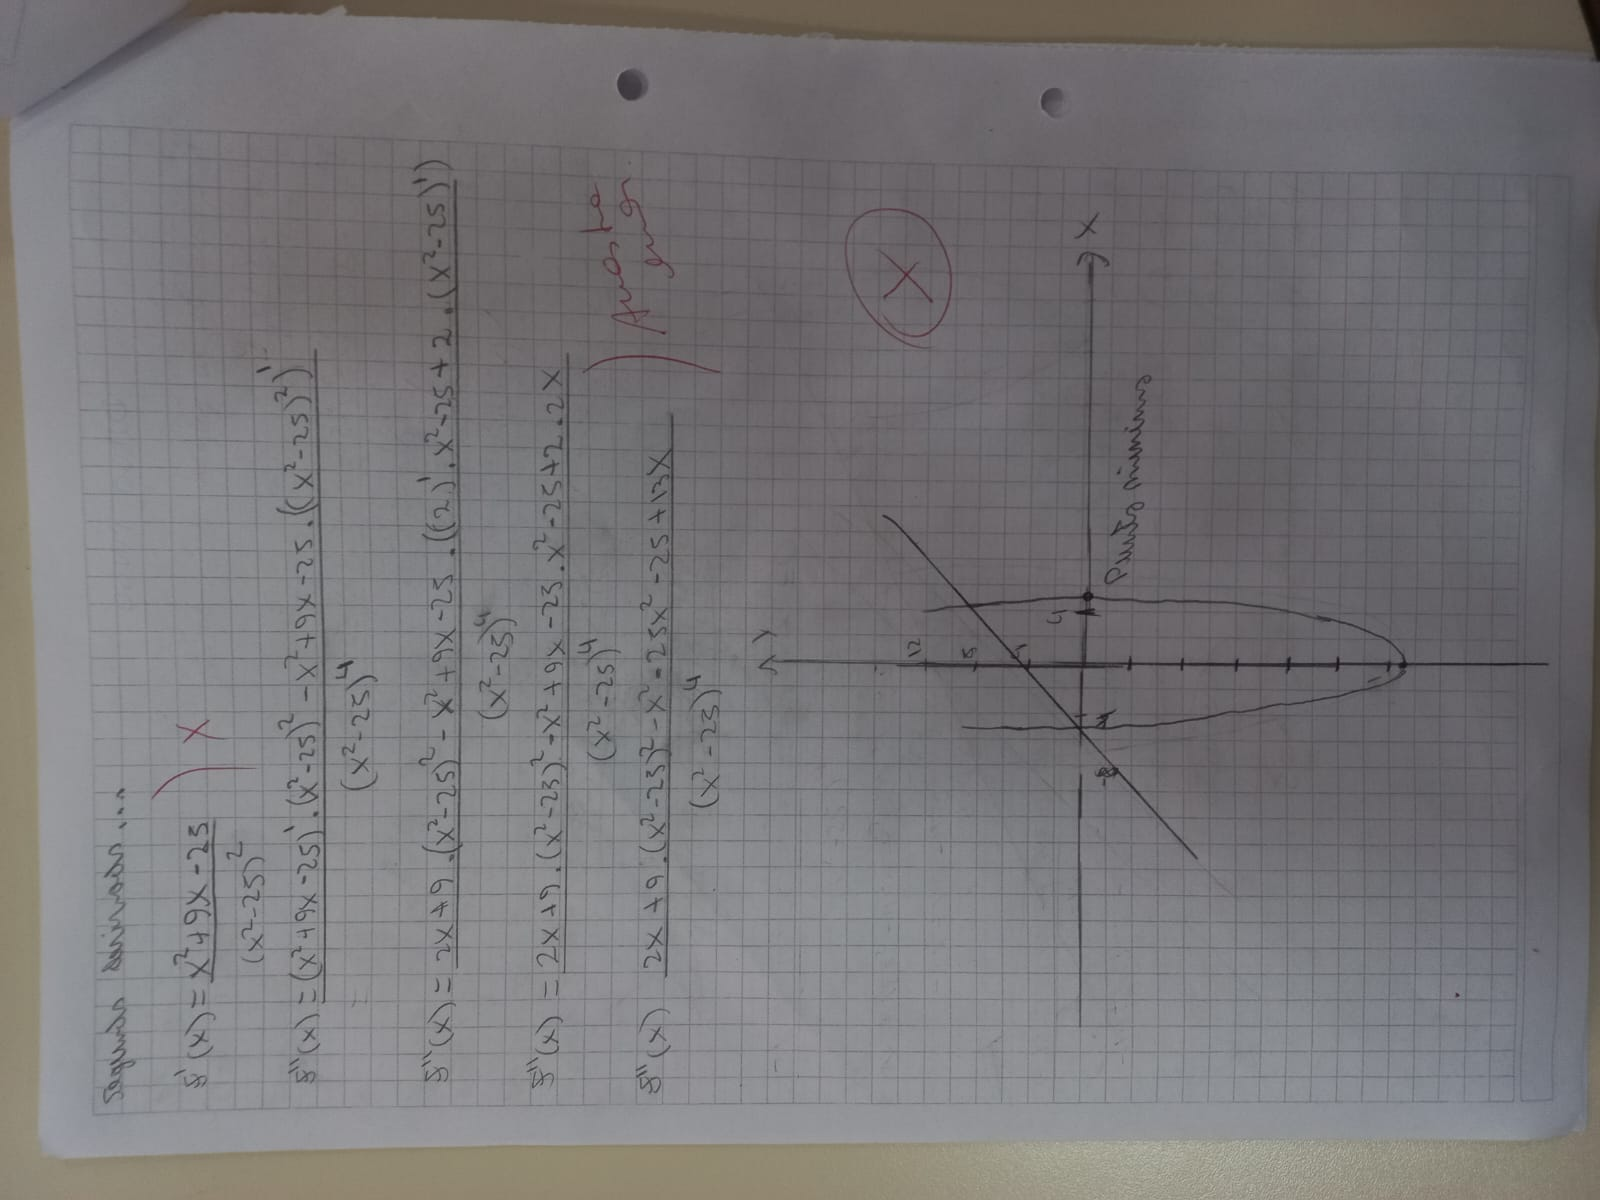 Segunda derivada...
f'(x) = x²+9x-25
(x²-25)²
) X
f''(x) = (x²+9x-25)'.(x²-25)² - x²+9x-25.((x²-25)²)'
= (x²-25)⁴
f''(x) = 2x+9.(x²-25)² - x²+9x-25.((2)'.x²-25+2.(x²-25)')
(x²-25)⁴
f''(x) = 2x+9.(x²-25)²-x²+9x-25.x²-25+2.2x
(x²-25)⁴
f''(x) 2x+9.(x²-25)²-x²-25x²-25+13x
(x²-25)⁴
)
X
y
12
8
4
4
-8
X
Puntos mínimos